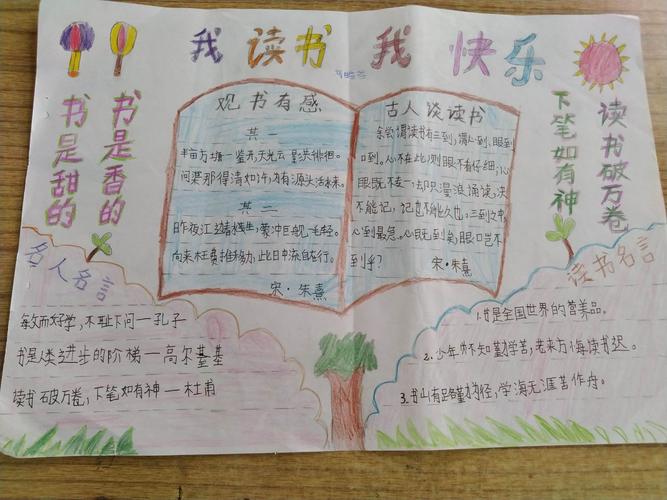 我读书 我快乐
书是香的
书是甜的
读书破万卷
下笔如有神
观书有感
其一
半亩方塘一鉴开,天光云影共徘徊。
问渠那得清如许,为有源头活水来。
其二
昨夜江边春水生,蒙冲巨舰一毛轻。
向来枉费推移力,此日中流自在行。
宋·朱熹
古人谈读书
余尝谓读书有三到,谓心到、眼到
口到。心不在此,则眼不看仔细,心
眼既不专一,却只漫浪诵读,决
不能记,记也不能久也。三到之中,
心到最急。心既到矣,眼口岂不
到乎?
宋·朱熹
名人名言
敏而好学,不耻下问—孔子
书是人类进步的阶梯—高尔基
读书破万卷,下笔如有神—杜甫
读书名言
1.书是全国世界的营养品。
2.少年不知勤学苦,老来方悔读书迟。
3.书山有路勤为径,学海无涯苦作舟。